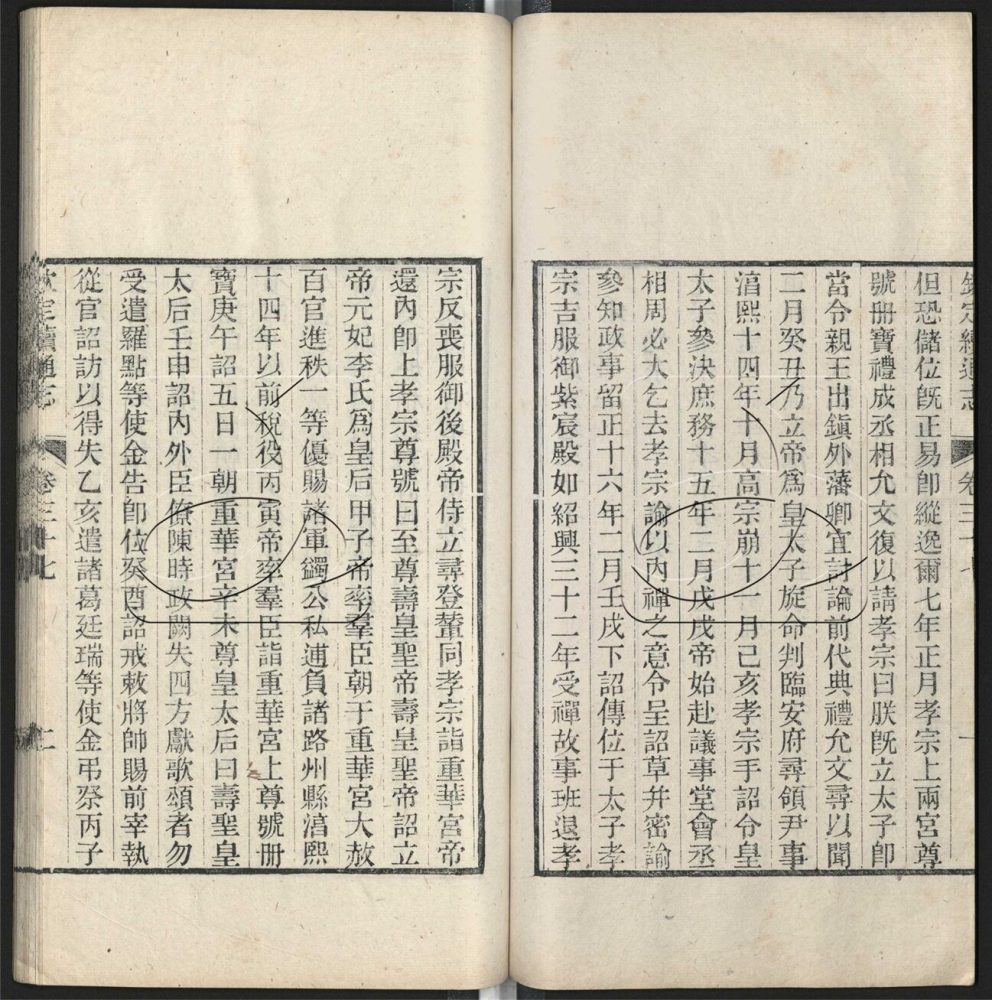 欽定續通志 卷三十七 一
但恐儲位旣正易卽縱逸爾七年正月孝宗上兩宮尊
號册寶禮成丞相允文復以請孝宗曰朕旣立太子卽
當令親王出鎭外藩卿宜討論前代典禮允文尋以聞
二月癸丑乃立帝爲皇太子旋命判臨安府尋領尹事
湻熙十四年十月高宗崩十一月己亥孝宗手詔令皇
太子參決庶務十五年二月戊戌帝始赴議事堂會丞
相周必大乞去孝宗諭以內禪之意令呈詔草幷密諭
參知政事留正十六年二月壬戌下詔傳位于太子孝
宗吉服御紫宸殿如紹興三十二年受禪故事班退孝
宗反喪服御後殿帝侍立尋登輦同孝宗詣重華宮帝
還內卽上孝宗尊號曰至尊壽皇聖帝壽皇聖帝詔立
帝元妃李氏爲皇后甲子帝率羣臣朝于重華宮大赦
百官進秩一等優賜諸軍蠲公私逋負諸路州縣湻熙
十四年以前稅役丙寅帝率羣臣詣重華宮上尊號册
寶庚午詔五日一朝重華宮辛未尊皇太后曰壽聖皇
太后壬申詔內外臣僚陳時政闕失四方獻歌頌者勿
受遣羅點等使金告卽位癸酉詔戒敕將帥賜前宰執
從官詔訪以得失乙亥遣諸葛廷瑞等使金弔祭丙子
欽定續通志 卷三十七 二